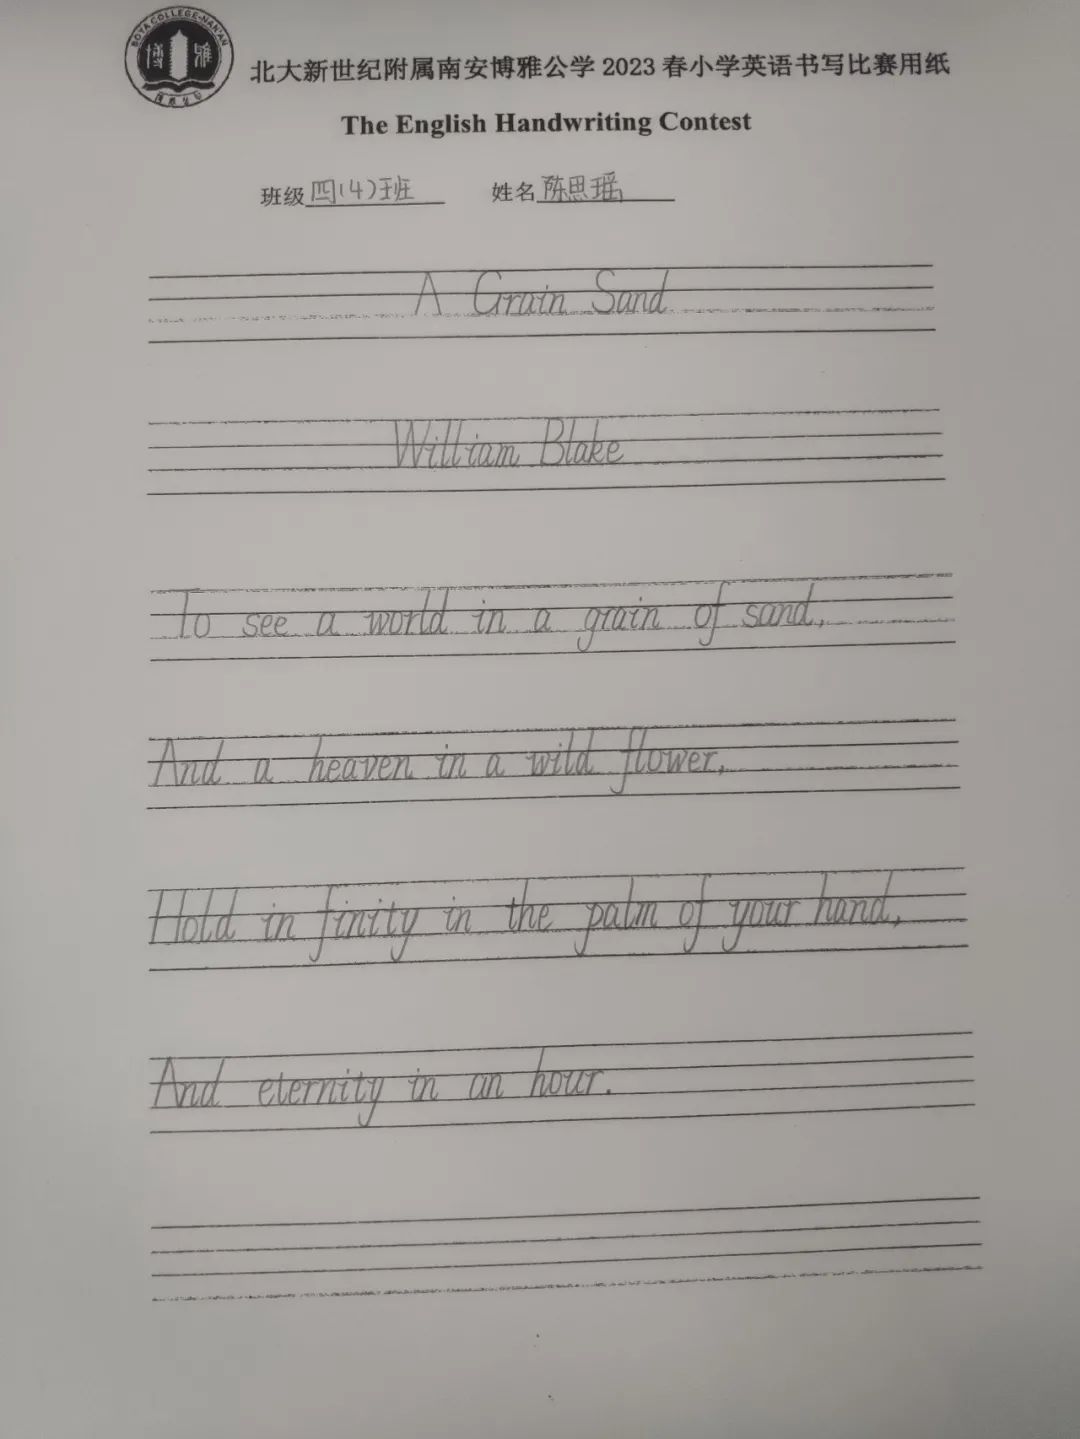 BOYA COLLEGE-NAN'AN
博雅
北大新世纪附属南安博雅公学 2023 春小学英语书写比赛用纸
The English Handwriting Contest
班级 四(4)班 姓名 陈思瑶
A Grain Sand
William Blake
To see a world in a grain of sand,
And a heaven in a wild flower,
Hold in finity in the palm of your hand,
And eternity in an hour.